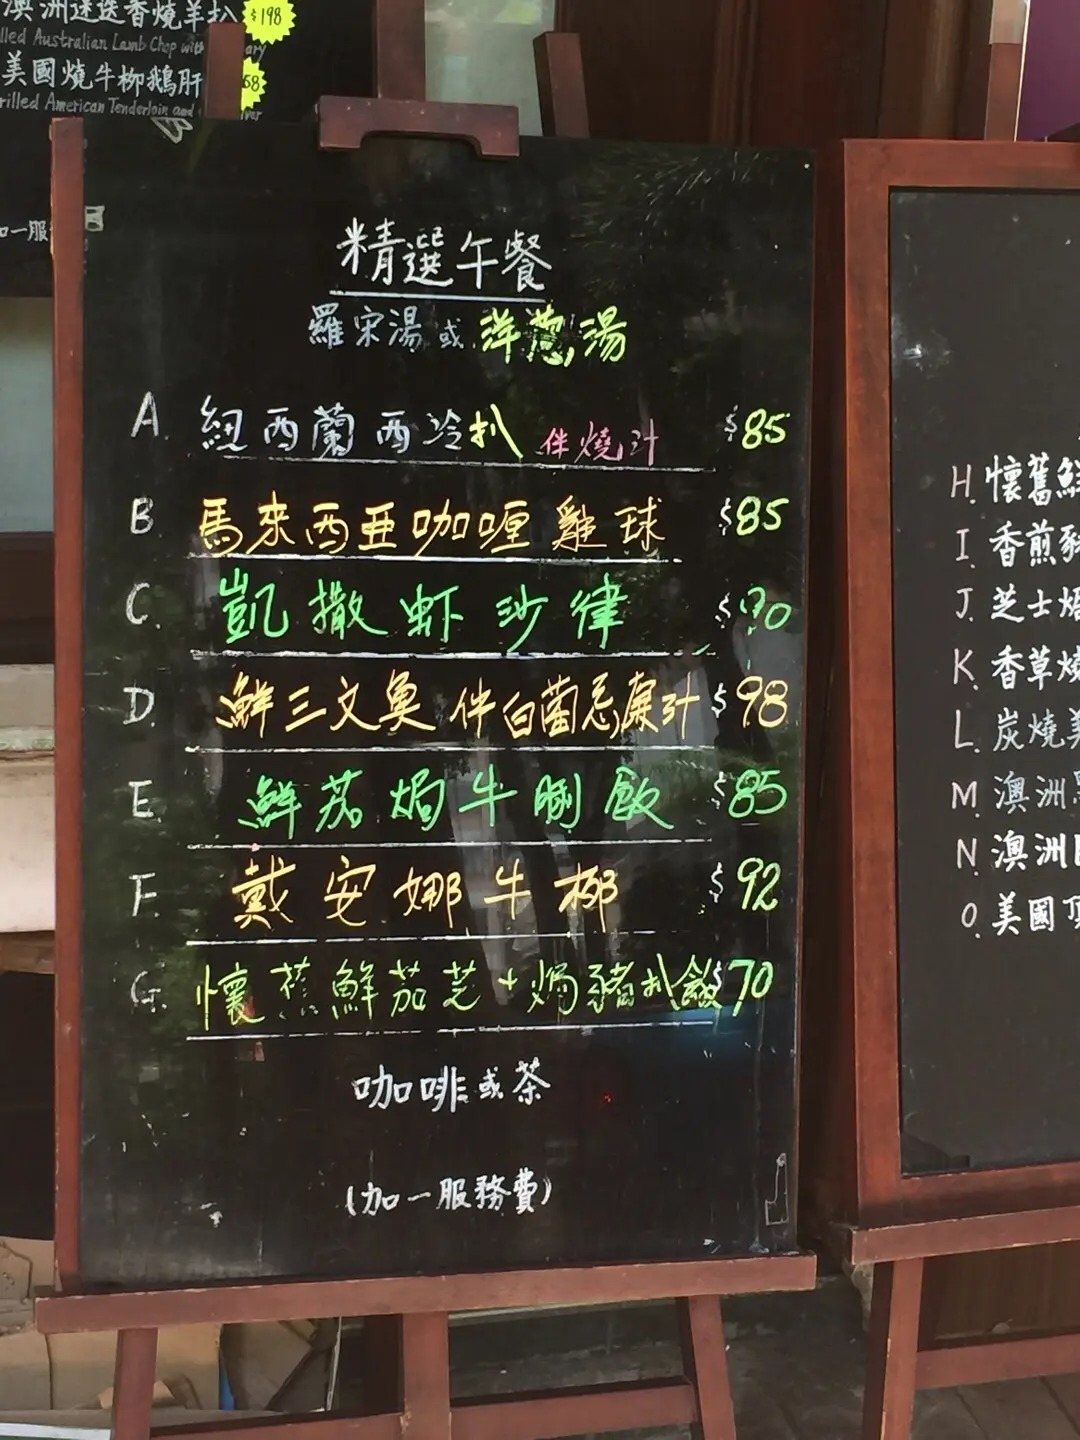 澳洲迷迭香燒羊扒 $198
lled Australian Lamb Chop with
美國燒牛柳鵝肝 68
rilled American Tenderloin and
加一服
精選午餐
羅宋湯 或 洋葱湯
A. 紐西蘭西冷扒 伴燒汁 $85
B. 馬來西亞咖喱雞球 $85
C. 凱撒虾沙律 $90
D. 鮮三文魚伴白菌忌廉汁 $98
E. 鮮茄焗牛脷飯 $85
F. 戴安娜牛柳 $92
G. 懷舊鮮茄芝士焗豬扒飯 $70
咖啡或茶
(加一服務費)
H. 懷舊鮮
I. 香煎豬
J. 芝士焗
K. 香草燒
L. 炭燒美
M. 澳洲
N. 澳洲
O. 美國頂